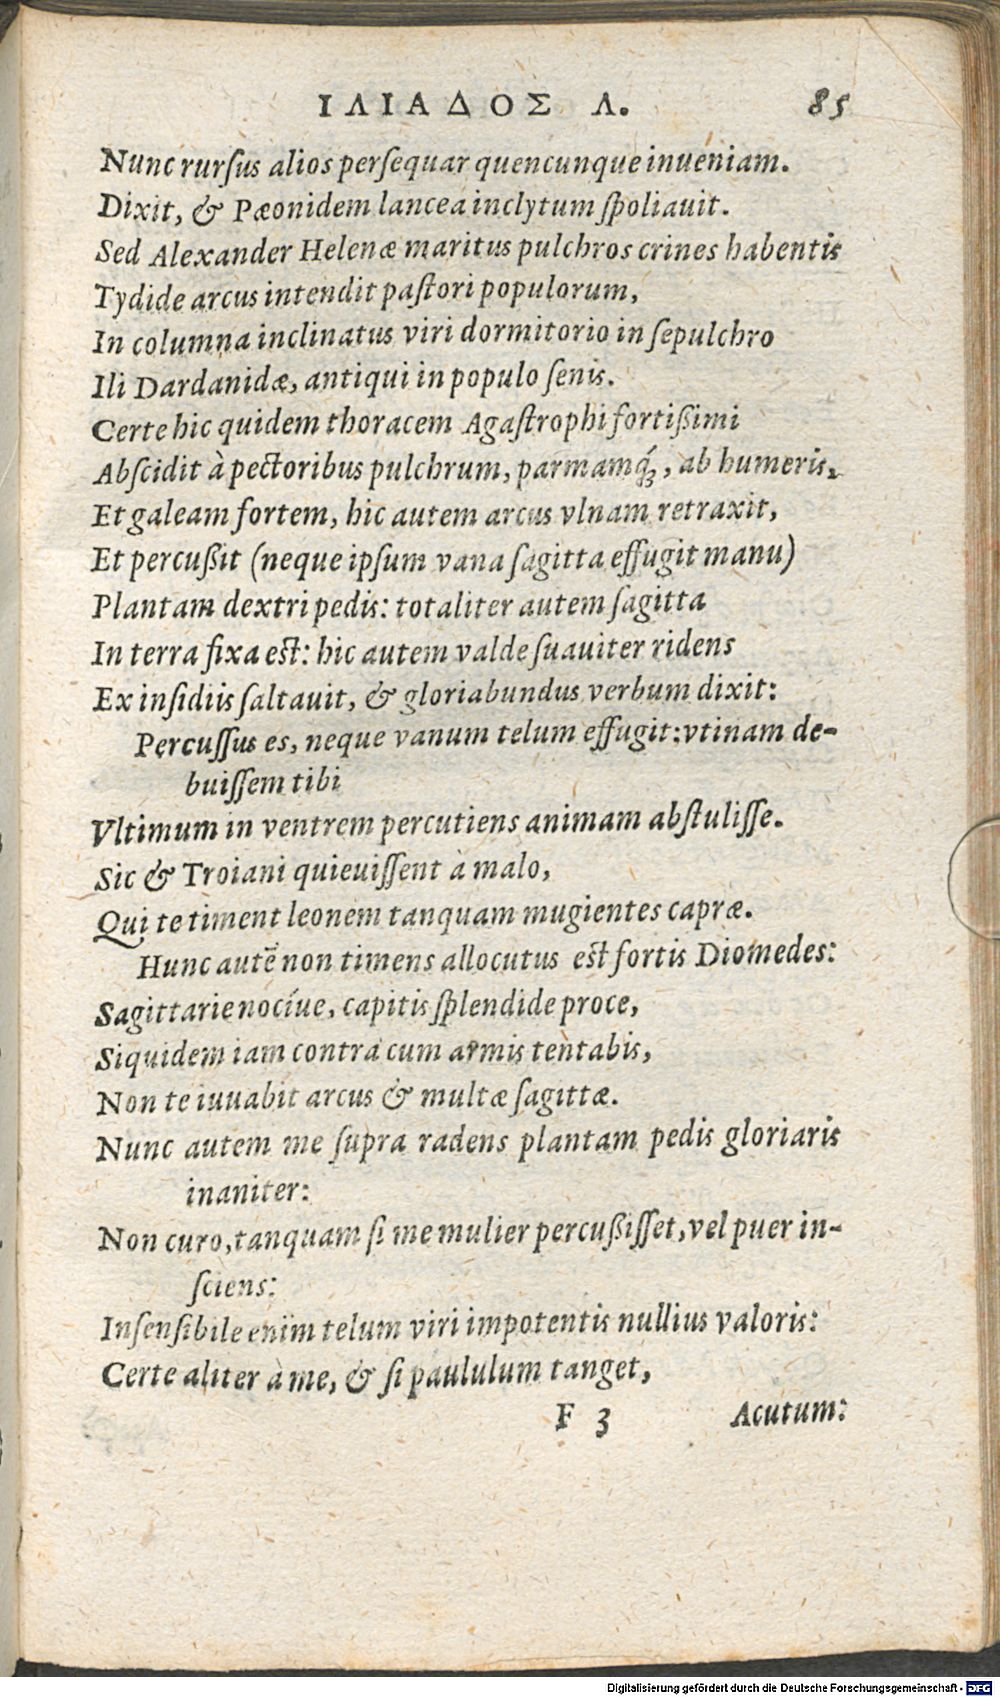 ΙΛΙΑΔΟΣ Λ. 85
Nunc rurſus alios perſequar quencunque inueniam.
Dixit, & Pæonidem lancea inclytum ſpoliauit.
Sed Alexander Helenæ maritus pulchros crines habentis
Tydide arcus intendit paſtori populorum,
In columna inclinatus viri dormitorio in ſepulchro
Ili Dardanidæ, antiqui in populo ſenis.
Certe hic quidem thoracem Agaſtrophi fortißimi
Abſcidit à pectoribus pulchrum, parmamq́;, ab humeris,
Et galeam fortem, hic autem arcus vlnam retraxit,
Et percußit (neque ipſum vana ſagitta effugit manu)
Plantam dextri pedis: totaliter autem ſagitta
In terra fixa eſt: hic autem valde ſuauiter ridens
Ex inſidiis ſaltauit, & gloriabundus verbum dixit:
Percuſſus es, neque vanum telum effugit: vtinam de-
buiſſem tibi
Vltimum in ventrem percutiens animam abſtuliſſe.
Sic & Troiani quieuiſſent à malo,
Qui te timent leonem tanquam mugientes capræ.
Hunc autē non timens allocutus eſt fortis Diomedes:
Sagittarie nociue, capitis ſplendide proce,
Siquidem iam contrà cum armis tentabis,
Non te iuuabit arcus & multæ ſagittæ.
Nunc autem me ſupra radens plantam pedis gloriaris
inaniter:
Non curo, tanquam ſi me mulier percußiſſet, vel puer in-
ſciens:
Inſenſibile enim telum viri impotentis nullius valoris:
Certe aliter à me, & ſi paululum tanget,
F 3 Acutum:
Digitalisierung gefördert durch die Deutsche Forschungsgemeinschaft - DFG